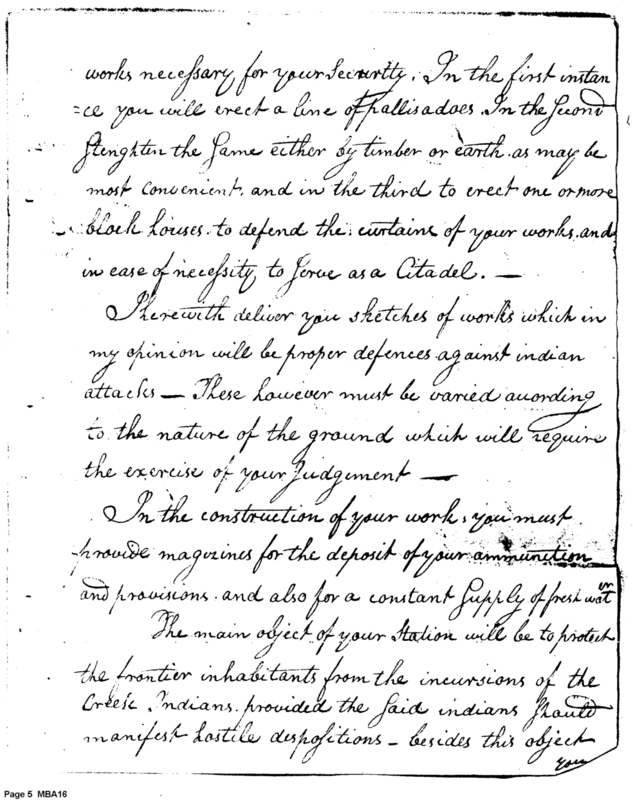 works necessary, for your Securitty. In the first instan
=ce you will erect a line of pallisadoes. In the Second
Stenghten the Same either by timber or earth. as may be
most convenient. and in the third to erect one or more
block houses. to defend the. curtains of your works. and
in case of necessity, to Serve as a Citadel. —
I herewith deliver you sketches of works which in
my opinion will be proper defences against indian
attacks — These however must be varied according
to the nature of the ground which will require
the exercise of your Judgement —
In the construction of your work, you must
provide magazines for the deposit of your ammunition
and provisions. and also for a constant Supply of fresh water
The main object of your Station will be to protect
the frontier inhabitants from the incursions of the
Creek Indians. provided the Said indians Should
manifest hostile despositions — besides this object
you
Page 5 MBA16